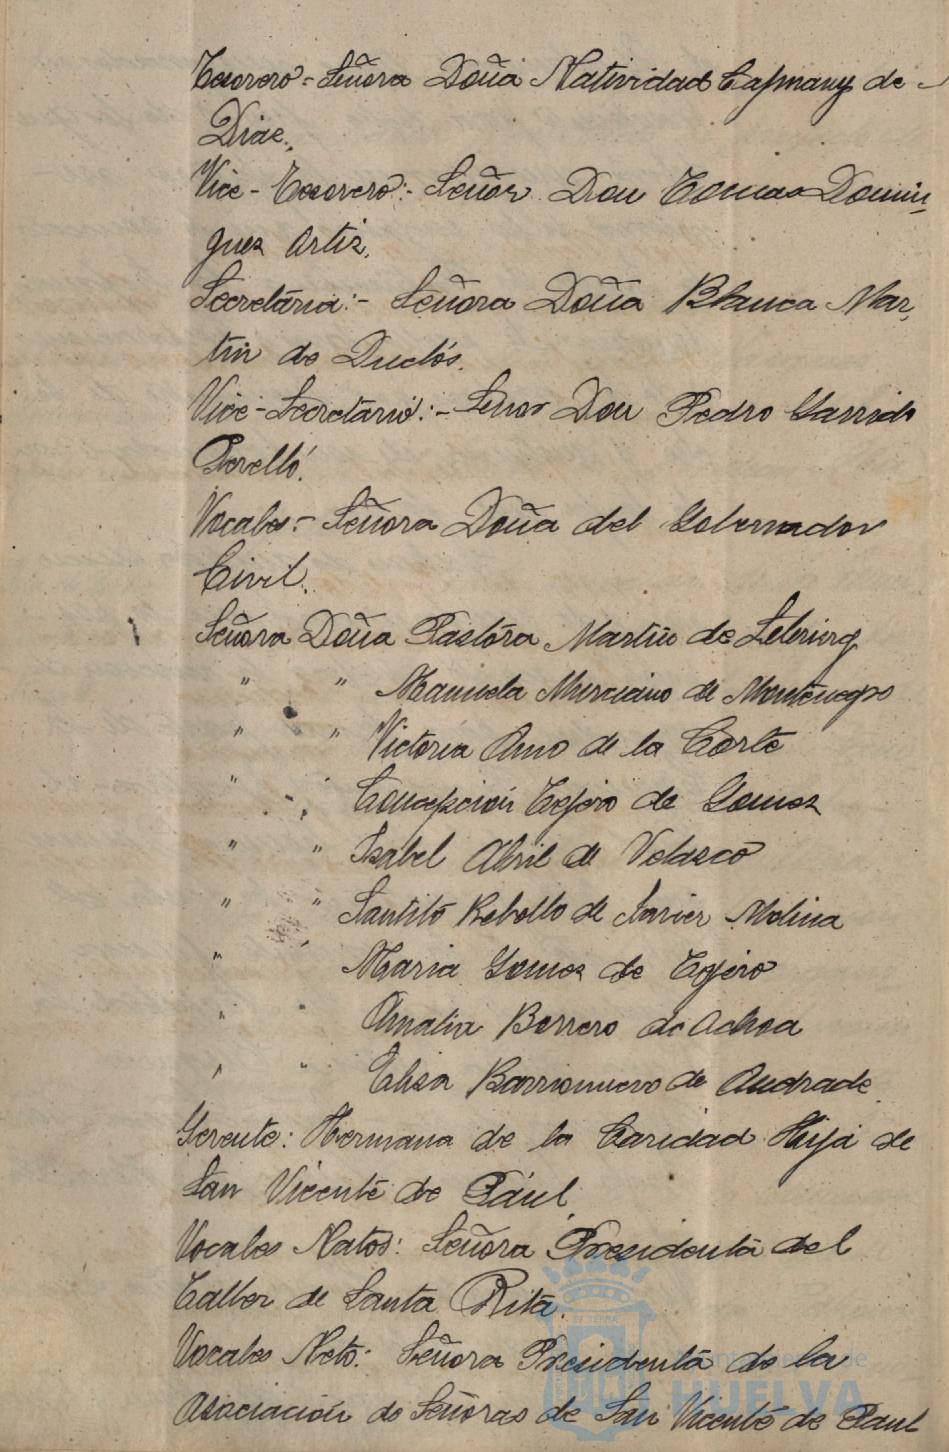 Tesorero = Señora Doña Natividad Capmany de
Diae.
Vice - Tesorero:- Señor Don Tomas Domin-
guez Artiz.
Secretaria:- Señora Doña Blanca Mar-
tin de Duclós.
Vice - Secretario:- Señor Don Pedro Garrido
Perelló.
Vocales = Señora Doña del Gobernador
Civil.
Señora Doña Pastora Martin de
" " Manuela Murciano de Montenegro
" " Victoria Amo de la Corte
" " Concepción Tejero de Gomez
" " Isabel Abril de Velasco
" " Santito Rebollo de Javier Molina
" " Maria Gomez de Tejero
" " Amalia Borrero de Achoa
" " Elisa Barrionuevo de Andrade.
Gerente: Hermana de la Caridad Hija de
San Vicente de Paul.
Vocales Natos: Señora Presidenta del
Taller de Santa Rita.
Vocales Nato: Señora Presidenta de la
Asociación de Señoras de San Vicente de Paul
HUELVA